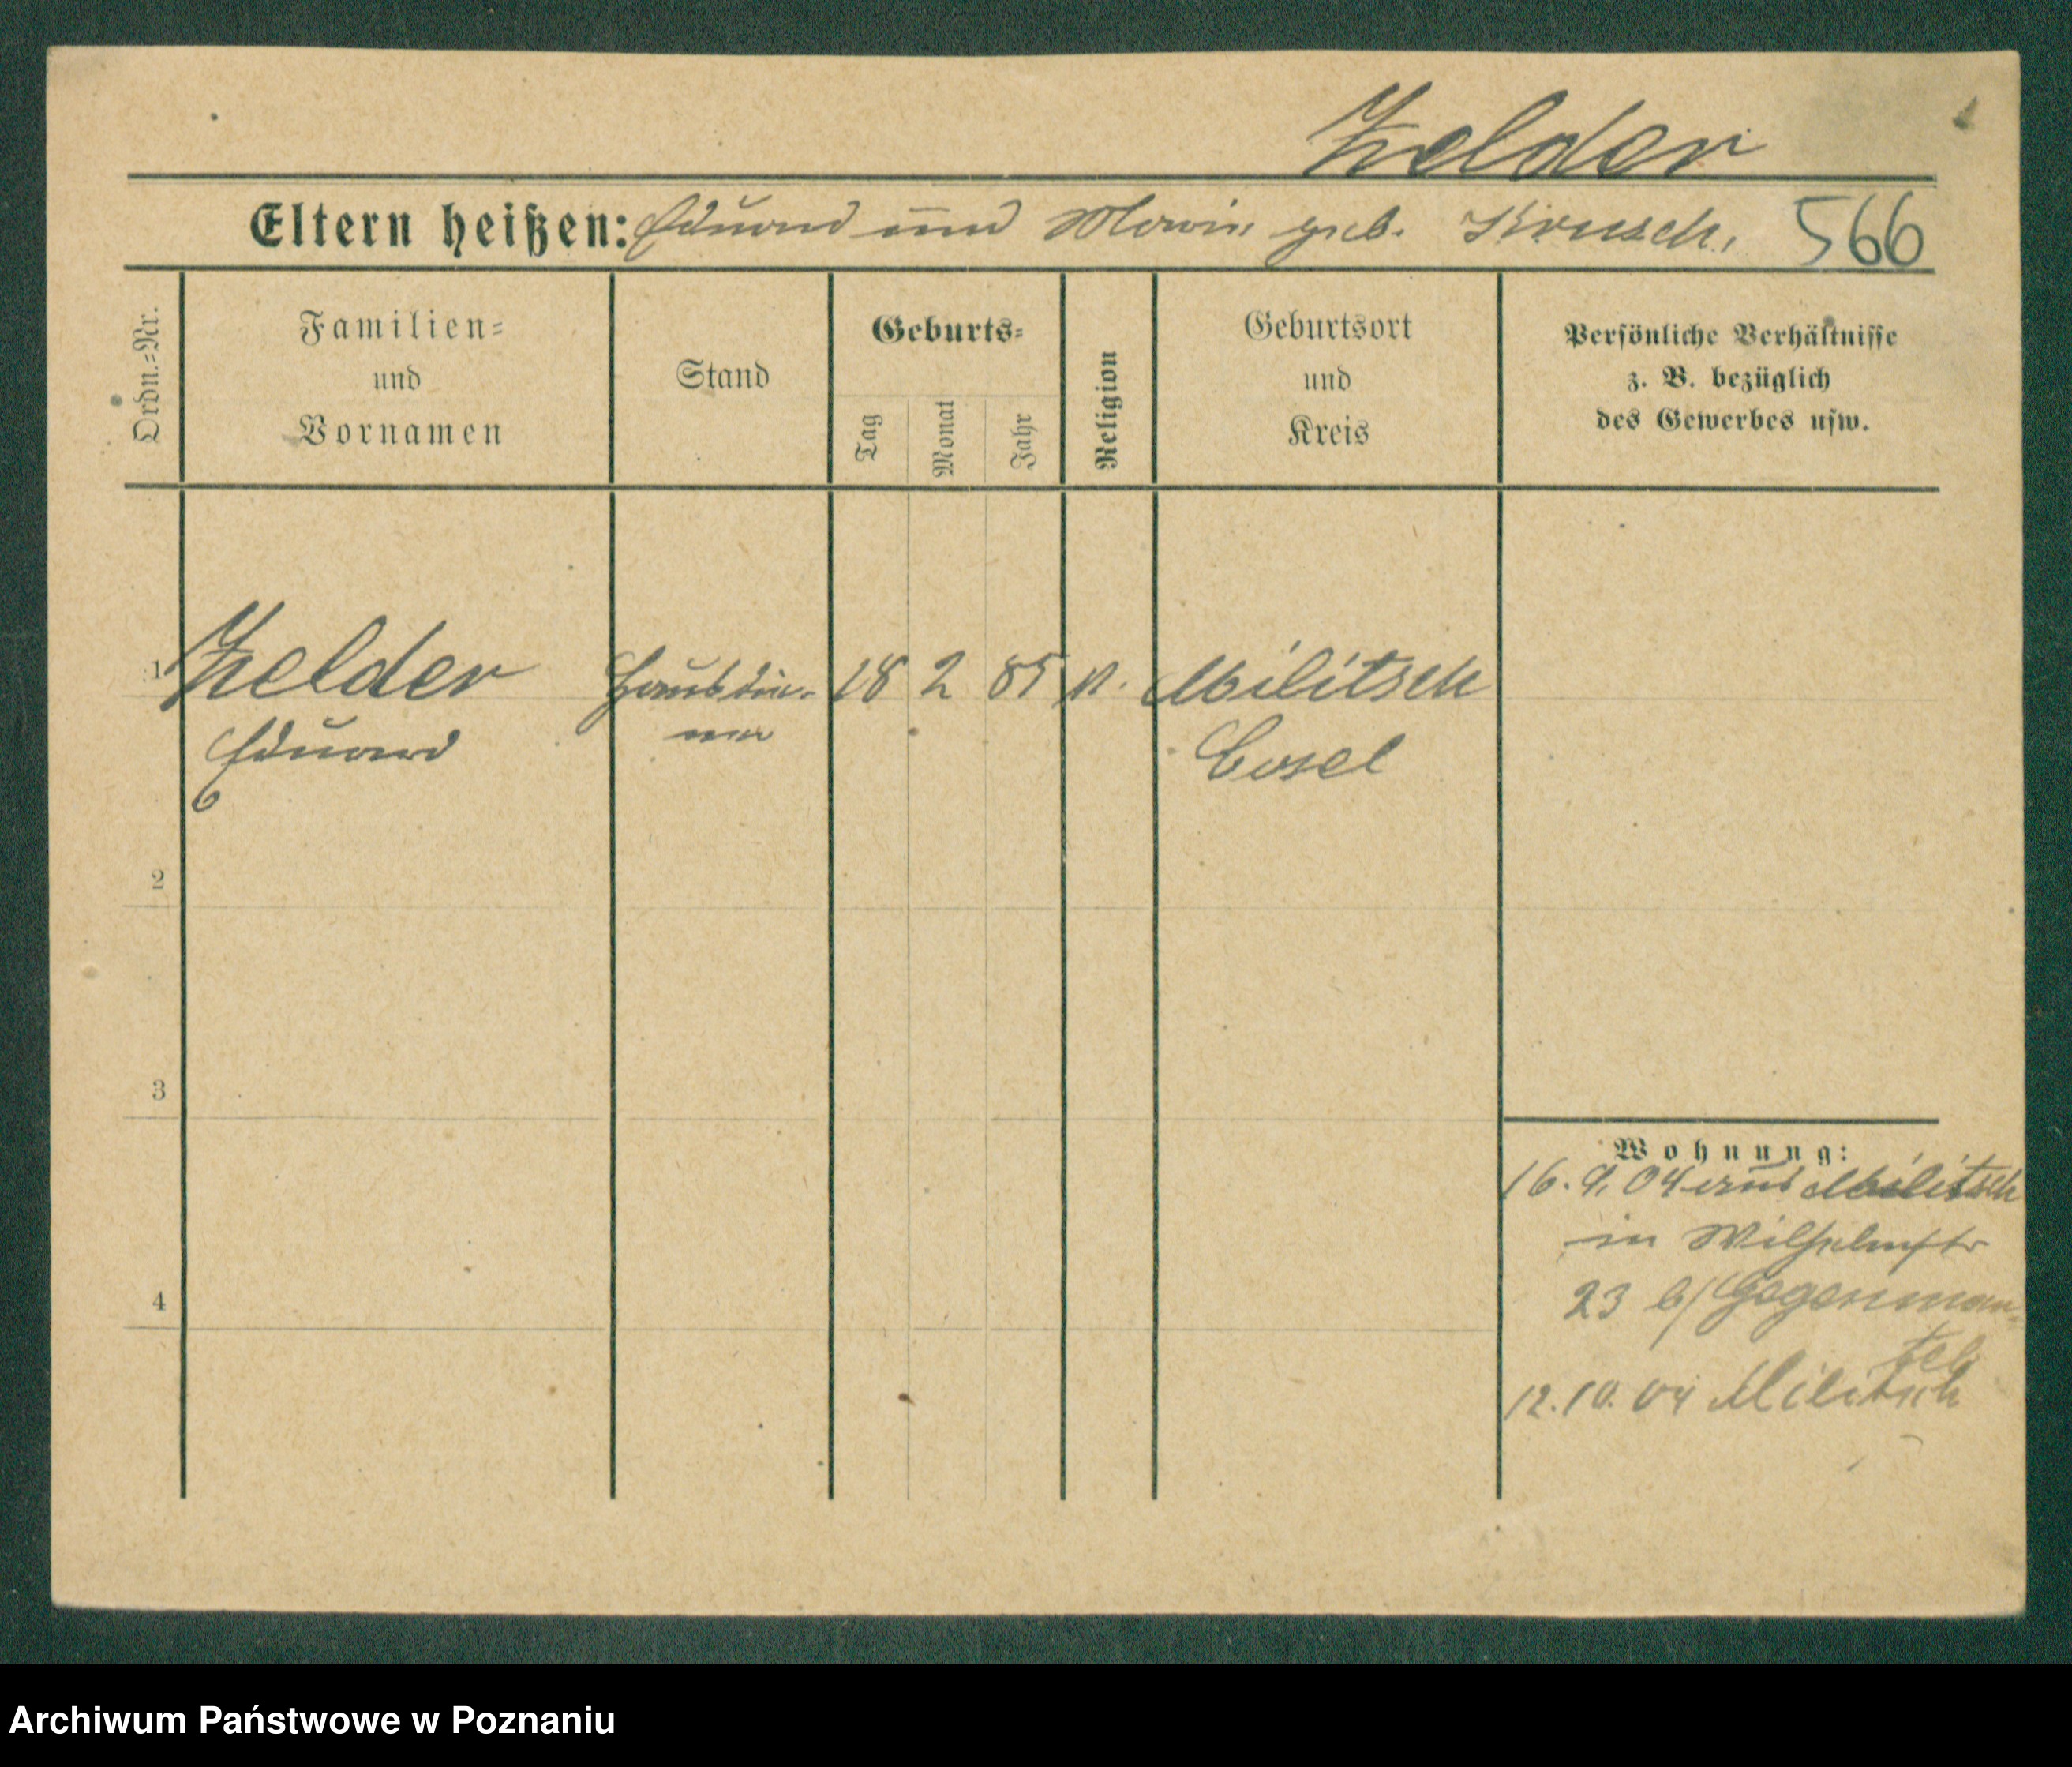 Zelder
Eltern heißen: Eduard und Marie geb. Krusch, 566
Ordn.=Nr.
Familien=
und
Vornamen
Stand
Geburts=
Tag
Monat
Jahr
Religion
Geburtsort
und
Kreis
Persönliche Verhältnisse
z. B. bezüglich
des Gewerbes usw.
1 Zelder Hausdie- 18 2 85 k. Militsch
Eduard ner Cosel
2
3
4
Wohnung:
16. 9. 04 aus Militsch
in Wilhelmstr
23 b/ Gegenman-
tel
12. 10. 04 Militsch
Archiwum Państwowe w Poznaniu